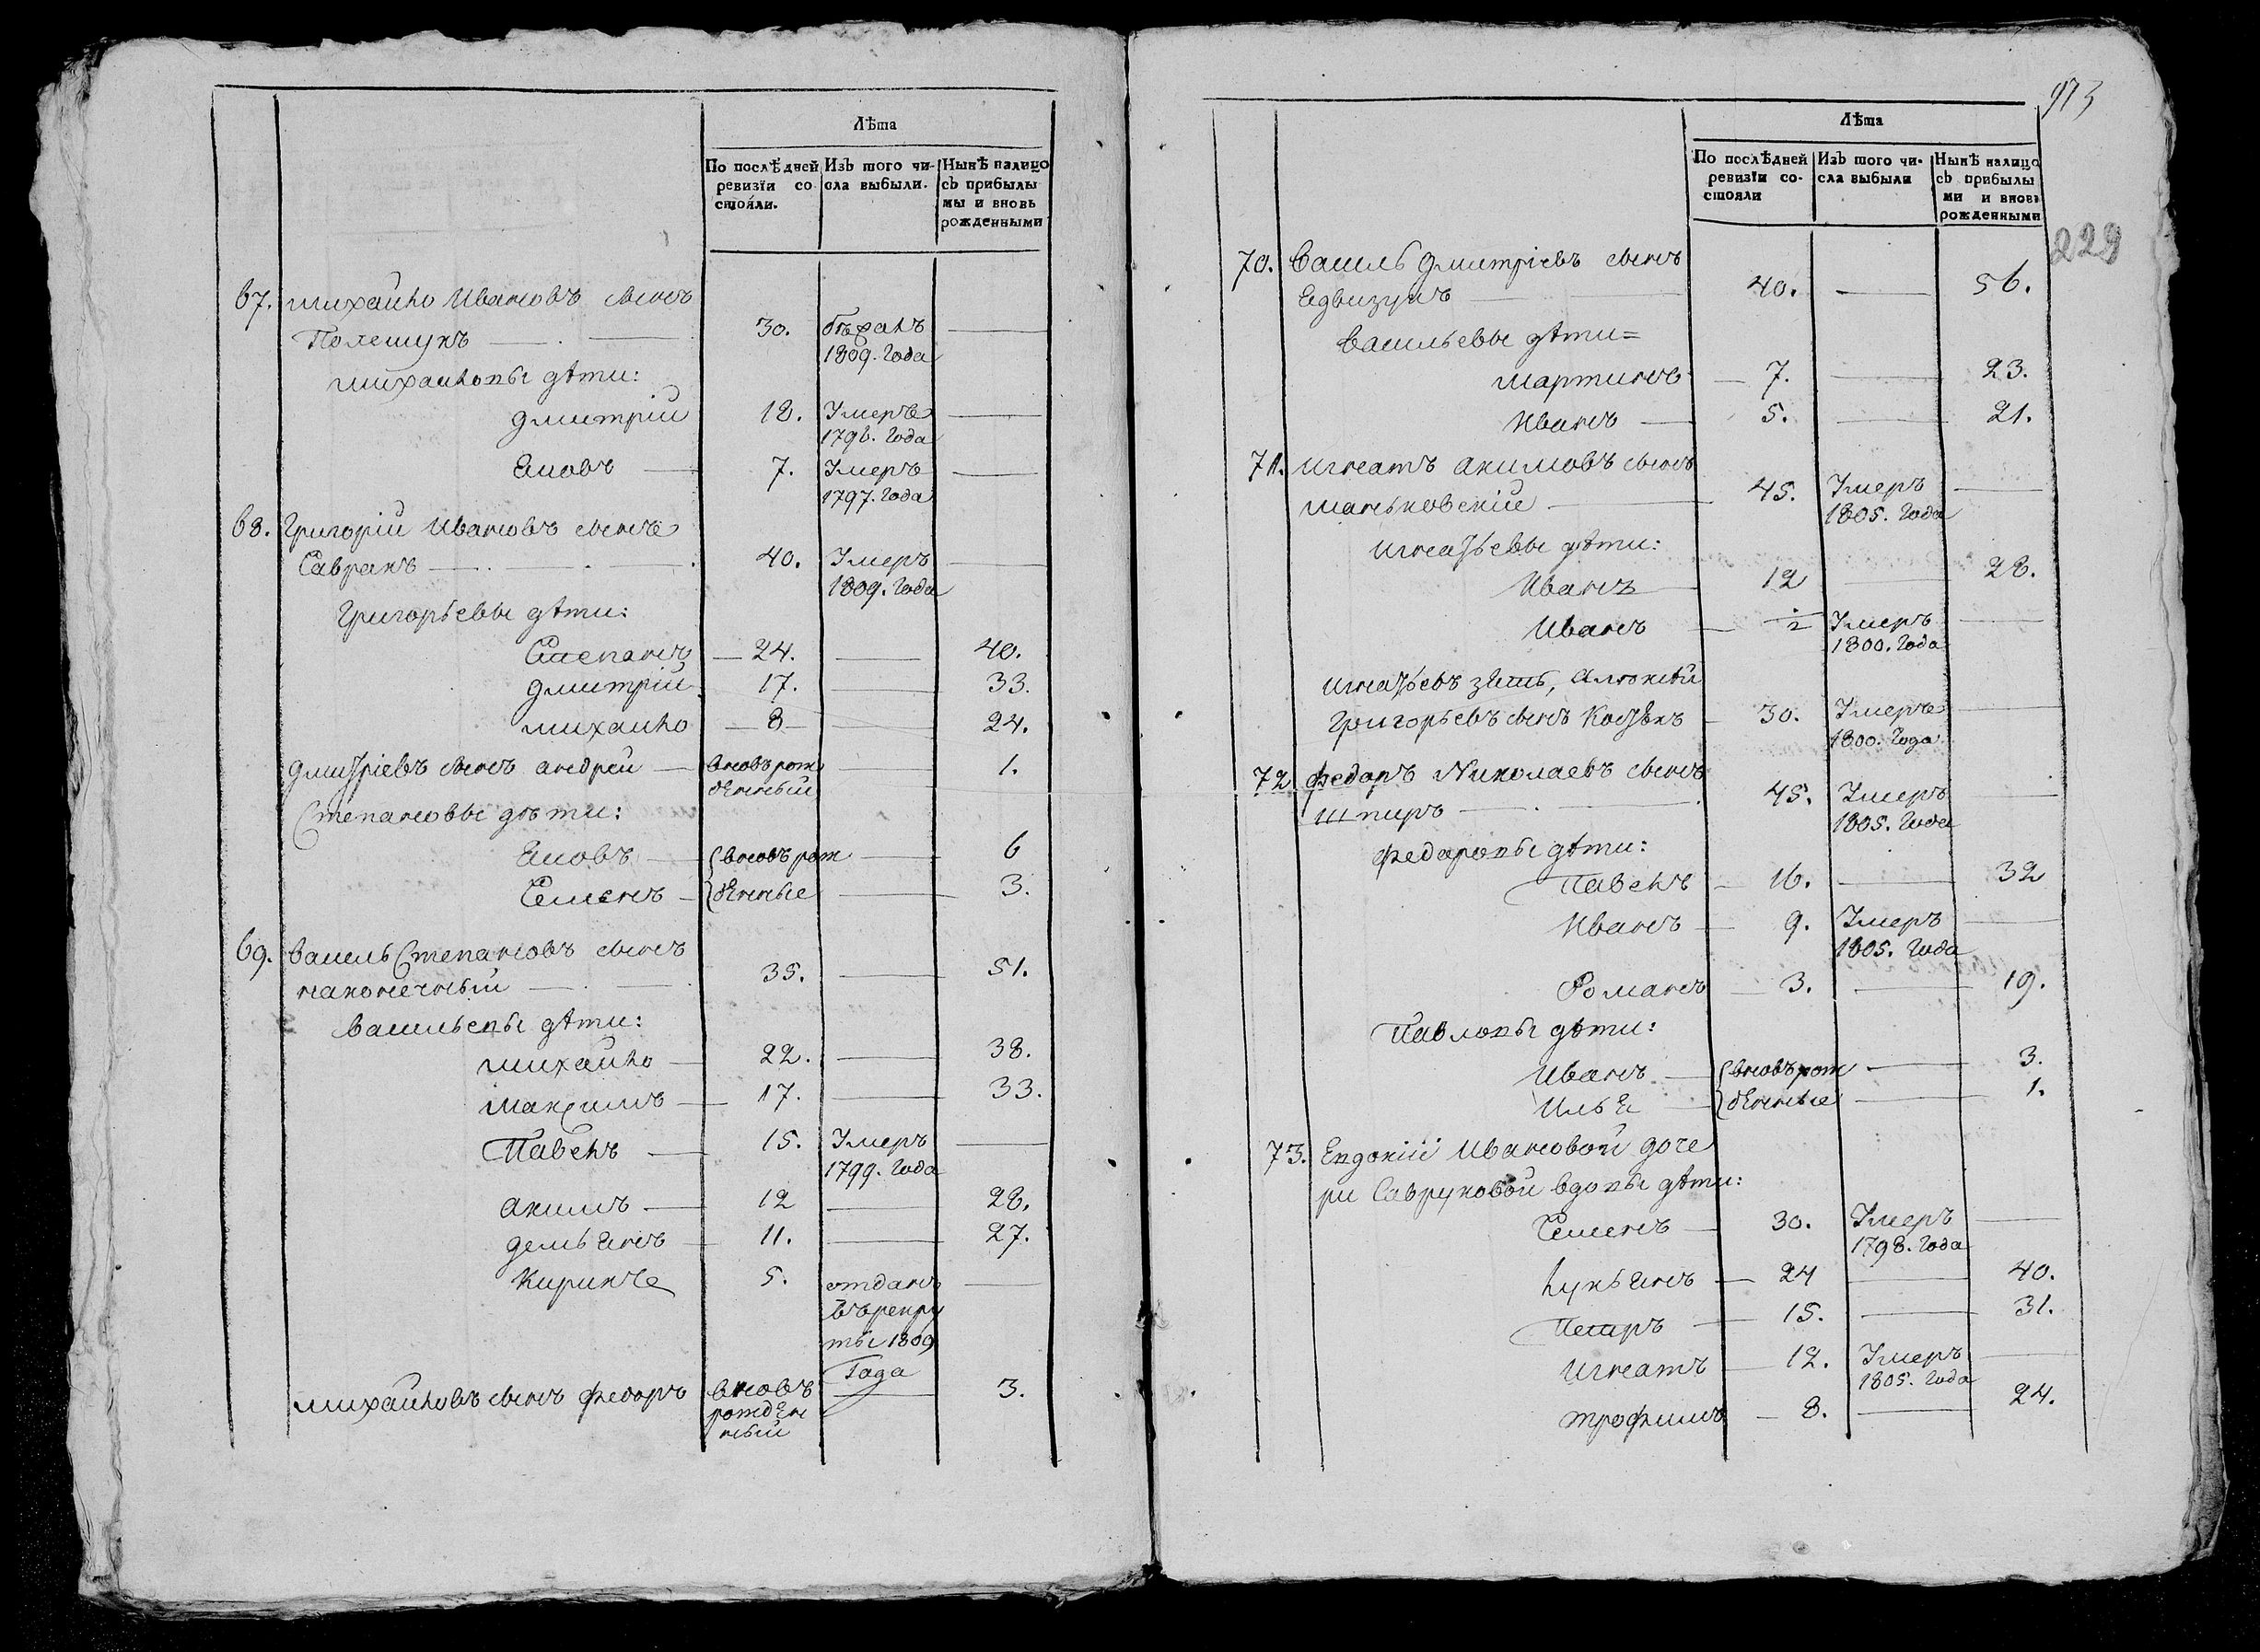 Лѣта
По послѣдней Изъ того чи- Нынѣ налицо
ревизїи со сла выбыли. съ прибылы
стояли. мы и вновь
рожденными
67. михайло Ивановъ сынъ
Полешукъ 30. бѣжалъ
1809. Года
михайловы дѣти:
дмитрій 18. Умеръ
1796. Года
Яковъ 7. Умеръ
1797. Года
68. Григорій Ивановъ сынъ
Савракъ 40. Умеръ
1809. Года
Григорьевы дѣти:
Степанъ 24. 40.
дмитрій 17. 33.
михайло 8 24.
дмитріевъ сынъ андрей вновь рож 1.
денный
Степановы дѣти:
Яковъ вновь рож 6
Семенъ денные 3.
69. василь Степановъ сынъ
наконечный 35. 51.
васильевы дѣти:
михайло 22. 38.
максимъ 17. 33.
Павелъ 15. Умеръ
1799. Года
акимъ 12 28.
демьянъ 11. 27.
Кирикъ 5. отданъ
въ рекру
ты 1809
Года
михайловъ сынъ федоръ вновь 3.
рожден
ный
973
229
Лѣта
По послѣдней Изъ того чи- Нынѣ налицо
ревизїи со- сла выбыли съ прибылы
стояли ми и вновь
рожденными
70. василь дмитріевъ сынъ
Едвизукъ 40. 56.
васильевы дѣти=
мартинъ 7. 23.
Иванъ 5. 21.
71. игнатъ акимовъ сынъ
маньковскій 45. Умеръ
1805. Года
игнатьевы дѣти:
Иванъ 12 28.
Иванъ ½ Умеръ
1800. Года
игнатьевъ зять, алексѣй
Григорьевъ сынъ 30. Умеръ
1800. Года
72 федоръ Николаевъ сынъ
шпиръ 45. Умеръ
1805. Года
федоровы дѣти:
Павелъ 16. 32
Иванъ 9. Умеръ
1805. Года
Романъ 3. 19.
Павловы дѣти:
Иванъ вновь рож 3.
Илья денные 1.
73. Евдокіи Ивановой доче
ри Савруковой вдовы дѣти:
Семенъ 30. Умеръ
1798. Года
лукьянъ 24 40.
Петръ 15. 31.
игнатъ 12. Умеръ
1805. Года
трофимъ 8. 24.